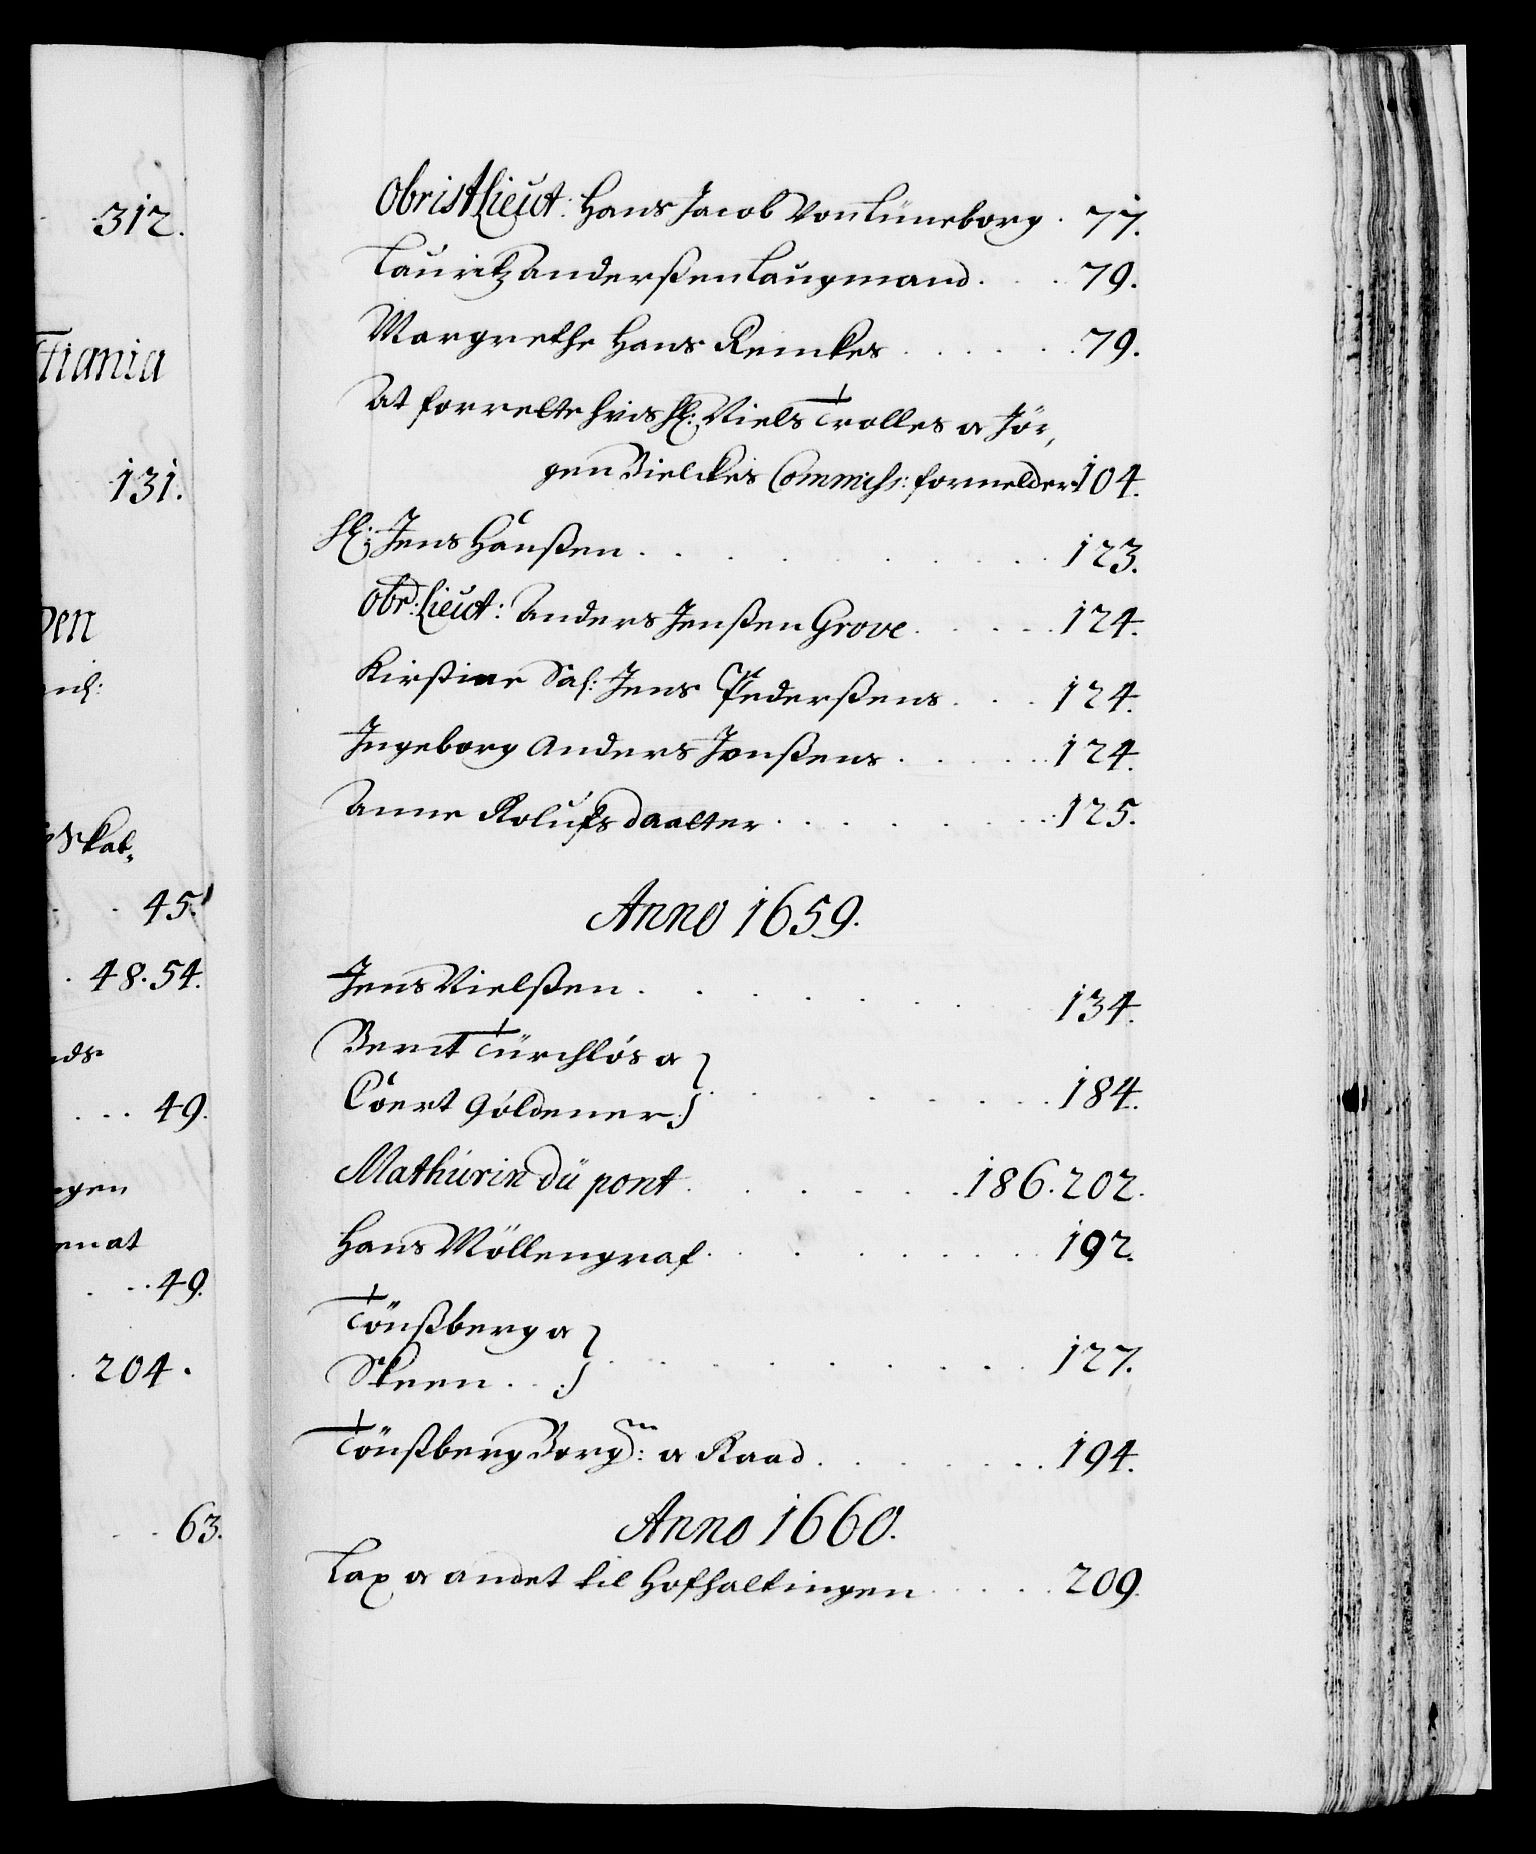 312.
tiania
131.
den
Skat„
45.
48.54.
49.
gen
49.
204.
63.
ObristLieut: Hans Jacob Von Lüneborg . 77.
Lauritz Anderßen Laugmand . . . 79.
Margrethe Hans Reinkes . . . . . . 79.
At forrette hvis Hl: Niels Trolles a Jör„
gen Bielckes Commiss: formelder 104.
Hl: Jens Hanßen . . . . . . . . 123.
Obr: Lieut: Anders Jenßen Grove . . . . . 124.
Kirstine Sal: Jens Pederßens . . . 124.
Ingeborg Anders Jenßens . . . . . 124.
Anne Rolufs daatter . . . . . . . . 125.
Anno 1659.
Jens Nielßen . . . . . . . . 134.
Berent Türchlós a }
Cóert Góldener } . . . . . . . . 184.
Mathúrin dü pont . . . . . . 186.202.
Hans Möllengraf . . . . . . . . 192.
Tönßberg a }
Skeen . . } . . . . . . . . . 127.
Tönßberg Borgm: a Raad . . . . . . . 194.
Anno 1660.
Lax a andet til Hofhaltingen . . . . 209.